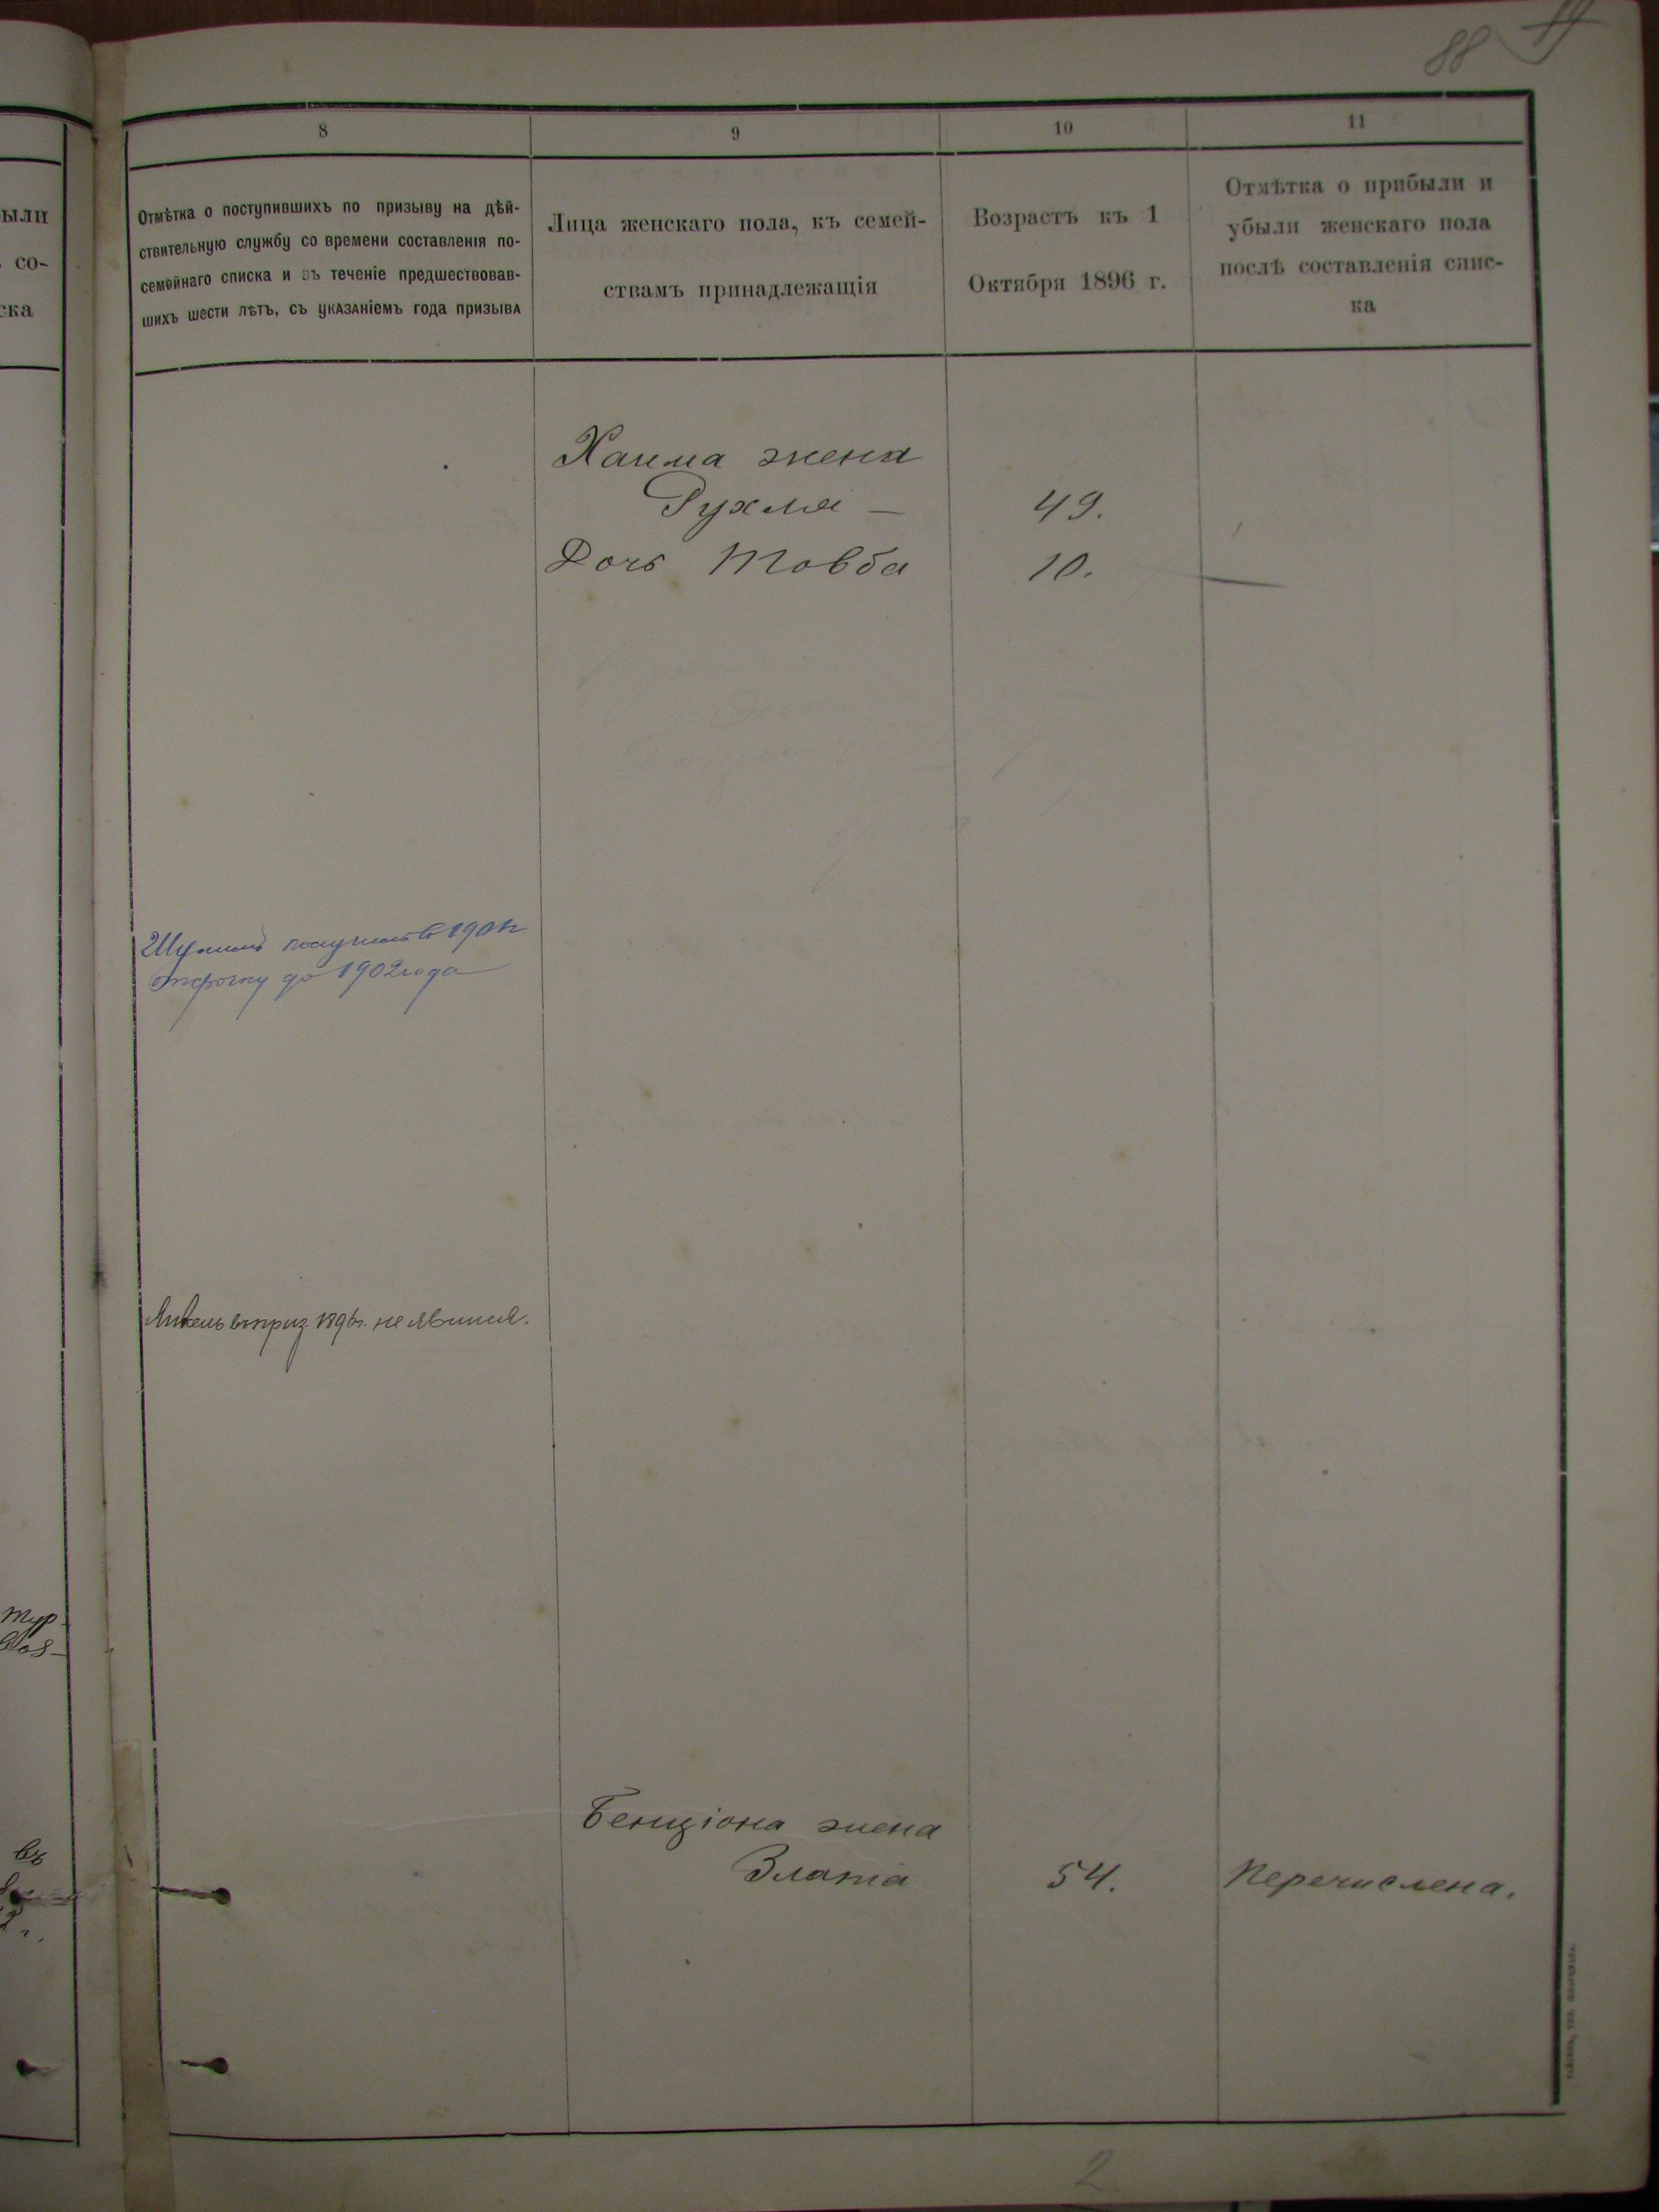 88
8
9
10
11
Отмѣтка о поступившихъ по призыву на дѣй-
ствительную службу со времени составленія по-
семейнаго списка и въ теченіе предшествовав-
шихъ шести лѣтъ, съ указаніемъ года призыва
Лица женскаго пола, къ семей-
ствамъ принадлежащія
Возрастъ къ 1
Октября 1896 г.
Отмѣтка о прибыли и
убыли женскаго пола
послѣ составленія спис-
ка
ыли
со-
ска
Хаима жена
Рухля — 49.
Дочь Товба 10.
получилъ въ 1901 г.
отсрочку до 1902 года
въ приз. 1896 г. не явился.
въ
Бенціона жена
Злата 54. Перечислена.
2